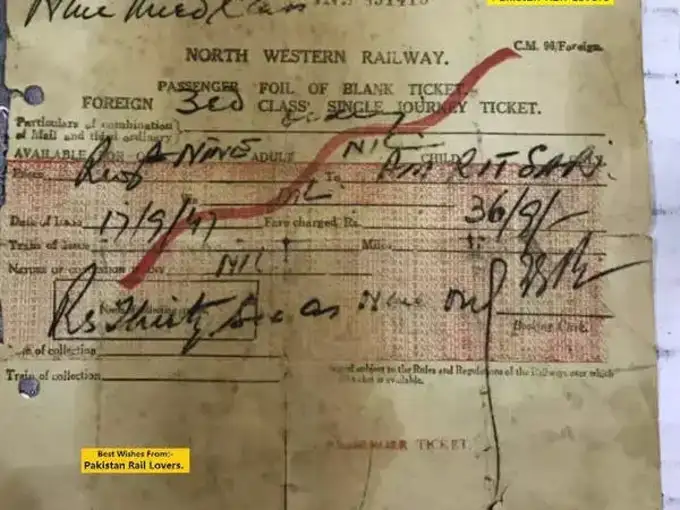 Nine Third Class
NORTH WESTERN RAILWAY.
C.M. 96/Foreign.
PASSENGER FOIL OF BLANK TICKET.
FOREIGN 3rd CLASS SINGLE JOURNEY TICKET.
Particulars of combination
of Mail and third ordinary
AVAILABLE FOR NINE ADULT NIL CHILD
From To AMRITSAR.
Via NIL
Date of Issue 17/9/47 Fare charged Rs. 36/9/-
Train of issue Miles
NIL
Rs Thirty Six as Nine only
Booking Clerk.
Date of collection
Train of collection
subject to the Rules and Regulations of the Railways over which
ticket is available.
PASSENGER TICKET.
Best Wishes From:-
Pakistan Rail Lovers.